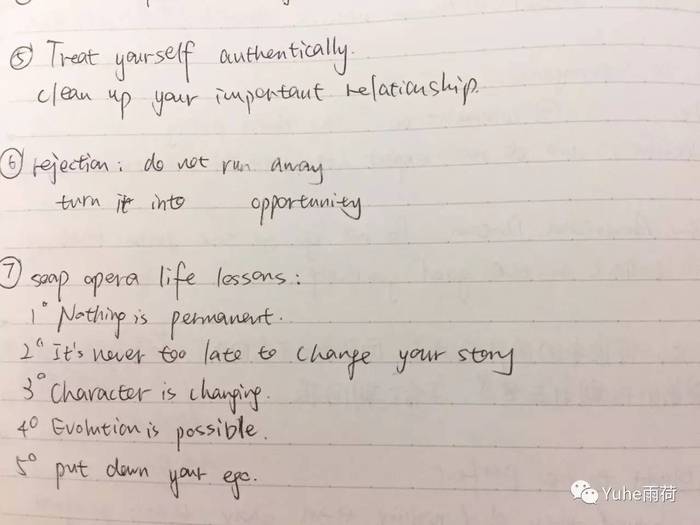 ⑤ Treat yourself authentically.
clean up your important relationship.
⑥ rejection: do not run away
turn it into opportunity
⑦ soap opera life lessons:
1° Nothing is permanent.
2° It's never too late to change your story
3° Character is changing.
4° Evolution is possible.
5° put down your ego.
Yuhe雨荷